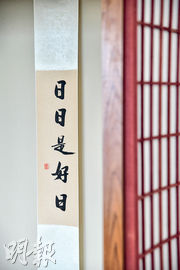 日日是好日
明報